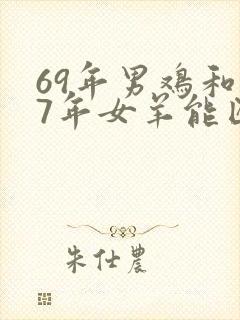 69年男鸡和
7年女羊能
朱仕農